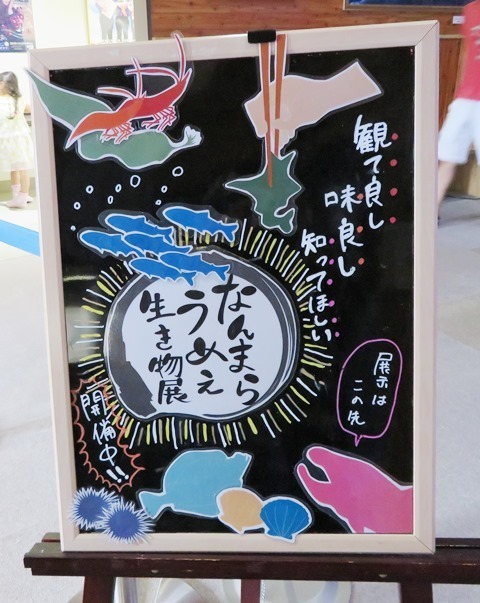 観て良し
味良し
知ってほしい
なんまら
うめぇ
生き物展
展示は
この先
開催中!!!